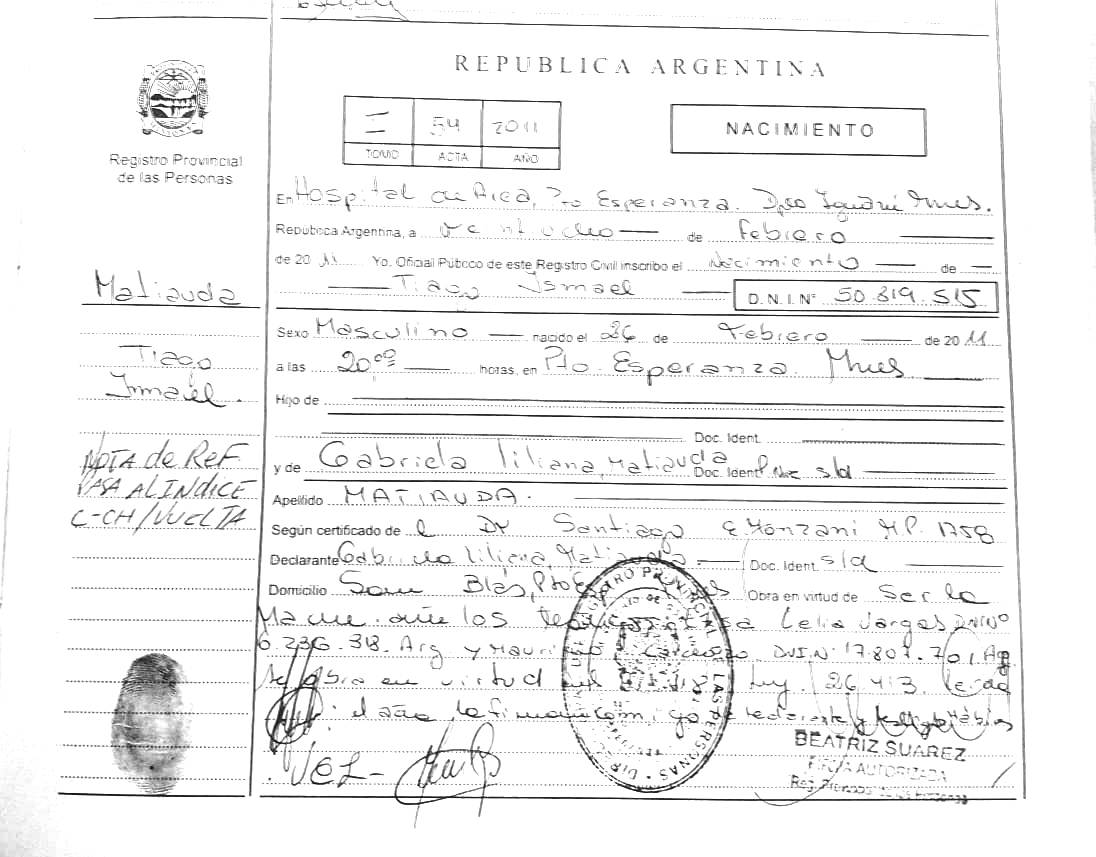 REPUBLICA ARGENTINA
Registro Provincial
de las Personas
I 54 2011
TOMO ACTA AÑO
NACIMIENTO
En Hospital de Area, Pto Esperanza. Dpto Iguazú Mnes.
Republica Argentina, a veintiocho de Febrero
de 2011 Yo. Oficial Público de este Registro Civil inscribo el Nacimiento de
Tiago Ismael D.N.I. N° 50.819.515
Matiauda
Tiago
Ismael.
Sexo Masculino nacido el 26 de Febrero de 2011
a las 20:00 horas, en Pto. Esperanza Mnes
Hijo de
Doc. Ident.
y de Gabriela Liliana Matiauda Doc. Ident. s/d
Apellido MATIAUDA.
NOTA de REF
PASA AL INDICE
C-CH/VUELTA
Según certificado de el Dr Santiago E. Monzani M.P. 1758
Declarante Gabriela Liliana Matiauda Doc. Ident. s/d
Domicilio San Blas, Pto Obra en virtud de Ser la
Madre ante los testigos Celia Vargas DNI N°
6.236.318. Arg y D.N.I N° 17.807.701. Arg
se obra en virtud del Ley. 26.413. Leída
el acta, la firman conmigo
VEL-
BEATRIZ SUAREZ
FIRMA AUTORIZADA
Reg. Provincial de las Personas